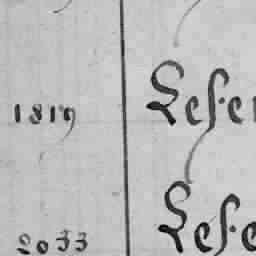 1819 Lefer
2033 Lefe